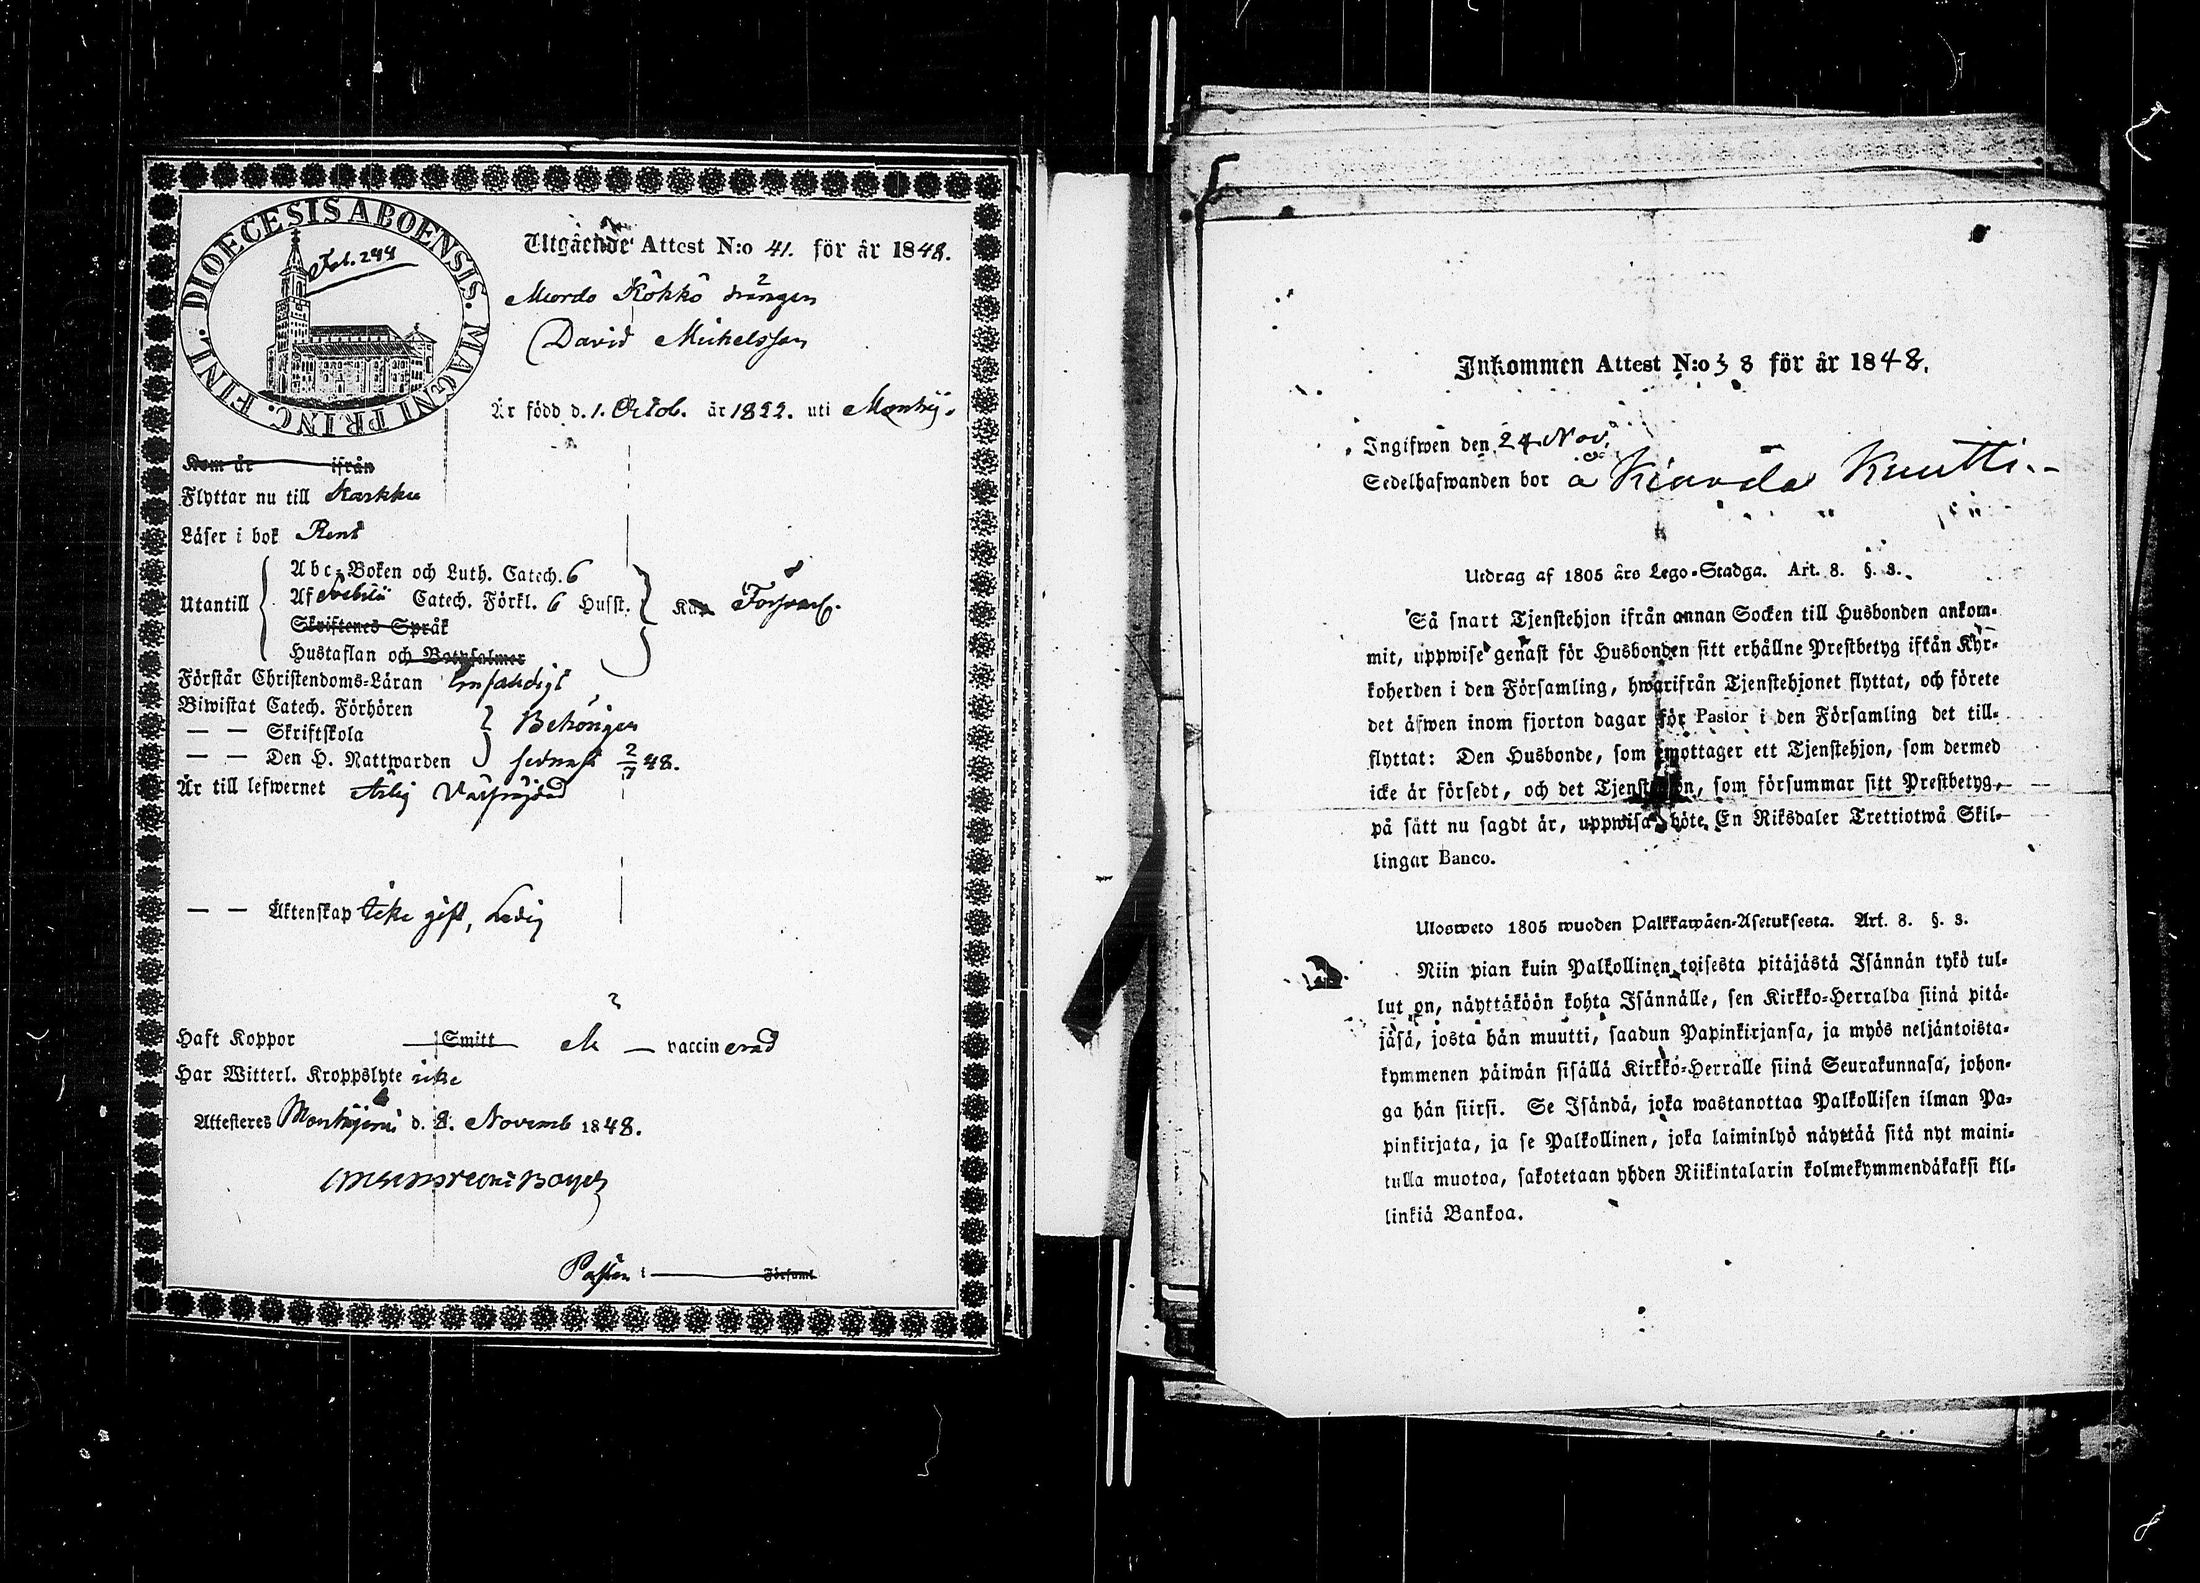 DIOECESIS ABOENSIS. MAGNI PRINC. FINL.
Fol. 244
Utgående Attest N:o 41. för år 1848.
Kökkö drängen
David Michelsson
Är född d. 1. Octob. år 1822. uti
Kom år ifrån
Flyttar nu till Karkku
Läser i bok Rent
Utantill
Abc-Boken och Luth. Catech. 6
Af Svebilii Catech. Förkl. 6 Husst.
Skriftenes Språk
Hustaflan och Botpsalmer
Kan Försvarl.
Förstår Christendoms-Läran Enfaldigt
Biwistat Catech. Förhören
— — Skriftskola
— — Den H. Nattwarden
Behörigen
sednast 2/7 48.
Är till lefwernet Ärlig
— — Äktenskap Icke gift, Ledig
Haft Koppor Smitt — vaccinerad
Har Witterl. Kroppslyte icke
Attesteres d. 8. Novemb 1848.
Pastor i Församl.
Inkommen Attest N:o 38 för år 1848.
Ingifwen den 24 Nov.
Sedelhafwanden bor å Kiurala Knutti.
Utdrag af 1805 års Lego-Stadga. Art. 8. §. 3.
Så snart Tjenstehjon ifrån annan Socken till Husbonden ankom-
mit, uppwise genast för Husbonden sitt erhållne Prestbetyg ifrån Kyr-
koherden i den Församling, hwarifrån Tjenstehjonet flyttat, och förete
det äfwen inom fjorton dagar för Pastor i den Församling det till-
flyttat: Den Husbonde, som emottager ett Tjenstehjon, som dermed
icke är försedt, och det Tjenstehjon, som försummar sitt Prestbetyg,
på sätt nu sagdt är, uppwisa, böte En Riksdaler Trettiotwå Skil-
lingar Banco.
Ulosweto 1805 wuoden Palkkawäen-Asetuksesta. Art. 8. §. 3.
Niin pian kuin Palkollinen toisesta pitäjästä Isännän tykö tul-
lut on, näyttäköön kohta Isännälle, sen Kirkko-Herralda siinä pitä-
jäsä, josta hän muutti, saadun Papinkirjansa, ja myös neljäntoista-
kymmenen päiwän sisällä Kirkko-Herralle siinä Seurakunnasa, johon-
ga hän siirsi. Se Isändä, joka wastanottaa Palkollisen ilman Pa-
pinkirjata, ja se Palkollinen, joka laiminlyö näyttää sitä nyt maini-
tulla muotoa, sakotetaan yhden Riikintalarin kolmekymmendäkaksi kil-
linkiä Bankoa.